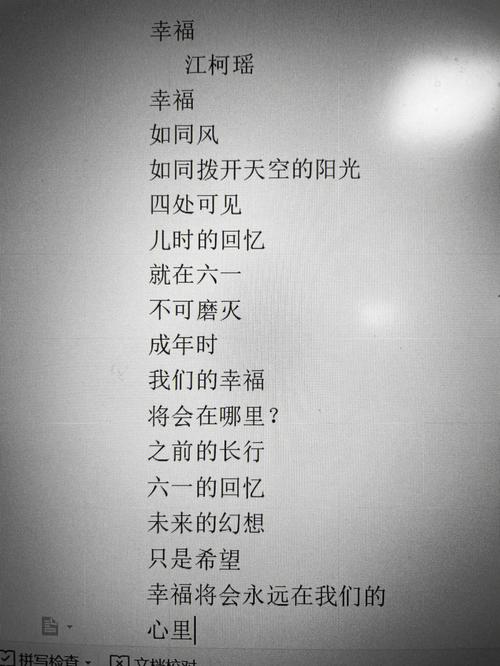 幸福
江柯瑶
幸福
如同风
如同拨开天空的阳光
四处可见
儿时的回忆
就在六一
不可磨灭
成年时
我们的幸福
将会在哪里？
之前的长行
六一的回忆
未来的幻想
只是希望
幸福将会永远在我们的
心里
拼写检查 文档校对